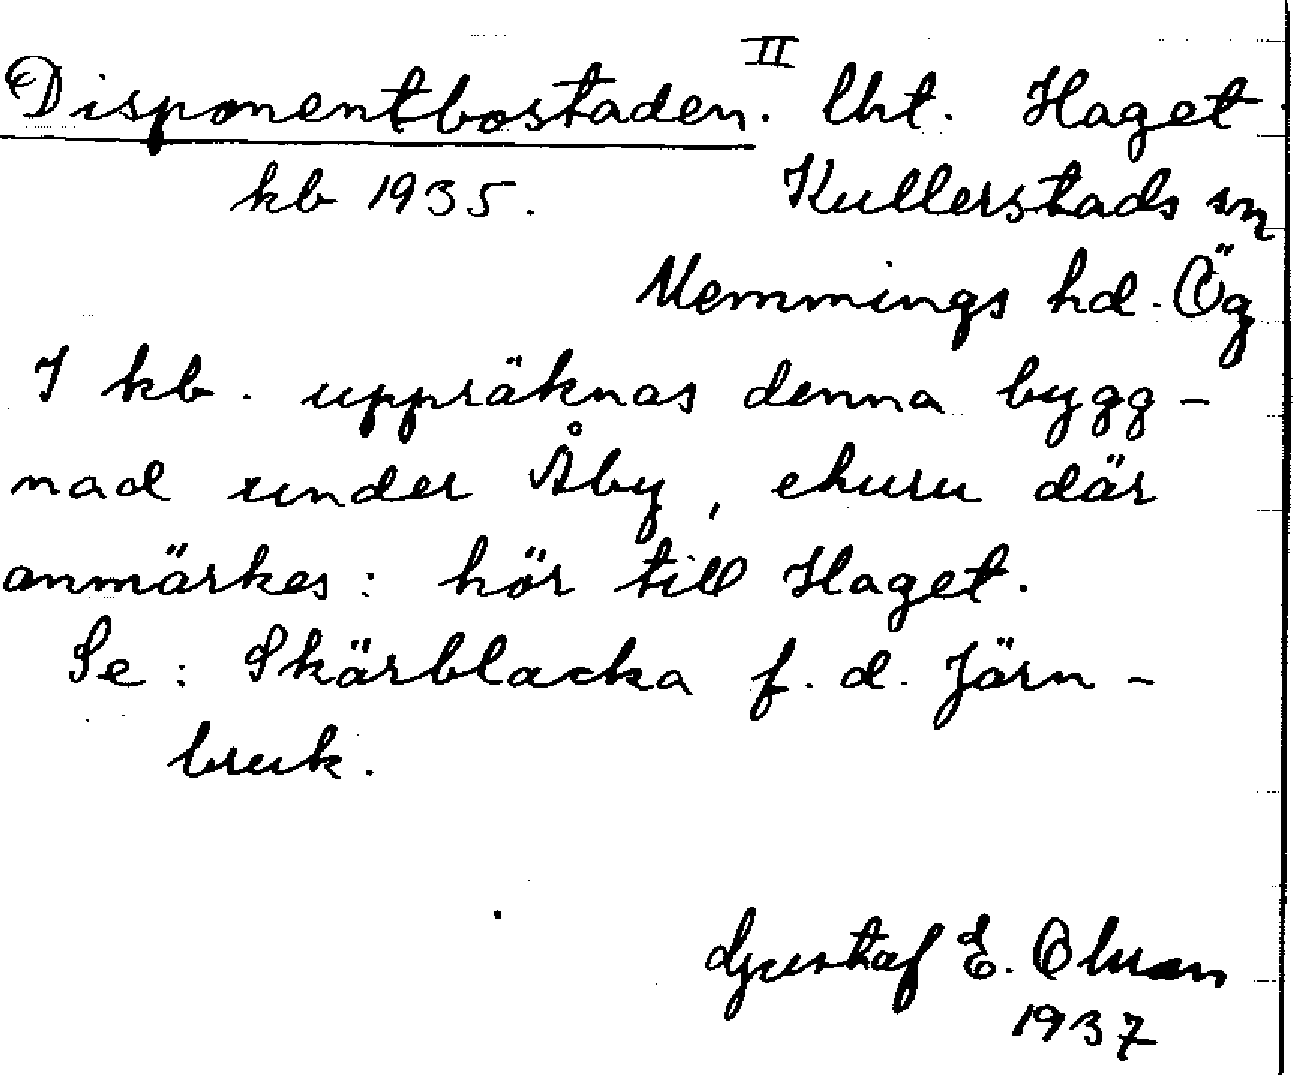 Disponentbostaden. II lht. Haget
kb 1935. Kullerstads sn
Memmings hd. Ög
I kb. uppräknas denna bygg-
nad under Åby, ehuru där
anmärkes: hör till Haget.
Se: Skärblacka f. d. Järn-
bruk.
Gustaf E.
1937